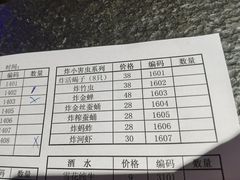 时间:
编码 数量
1401
1402
1403 X
1406
1408 X
炸小害虫系列 价格 编码 数量
炸活蝎子（8只） 38 1601
炸竹虫 38 1602
炸金蝉 48 1603
炸金丝蚕蛹 28 1604
炸榨蚕蛹 28 1605
炸蚂蚱 28 1606
炸河虾 30 1607
酒水 价格 编码 数量